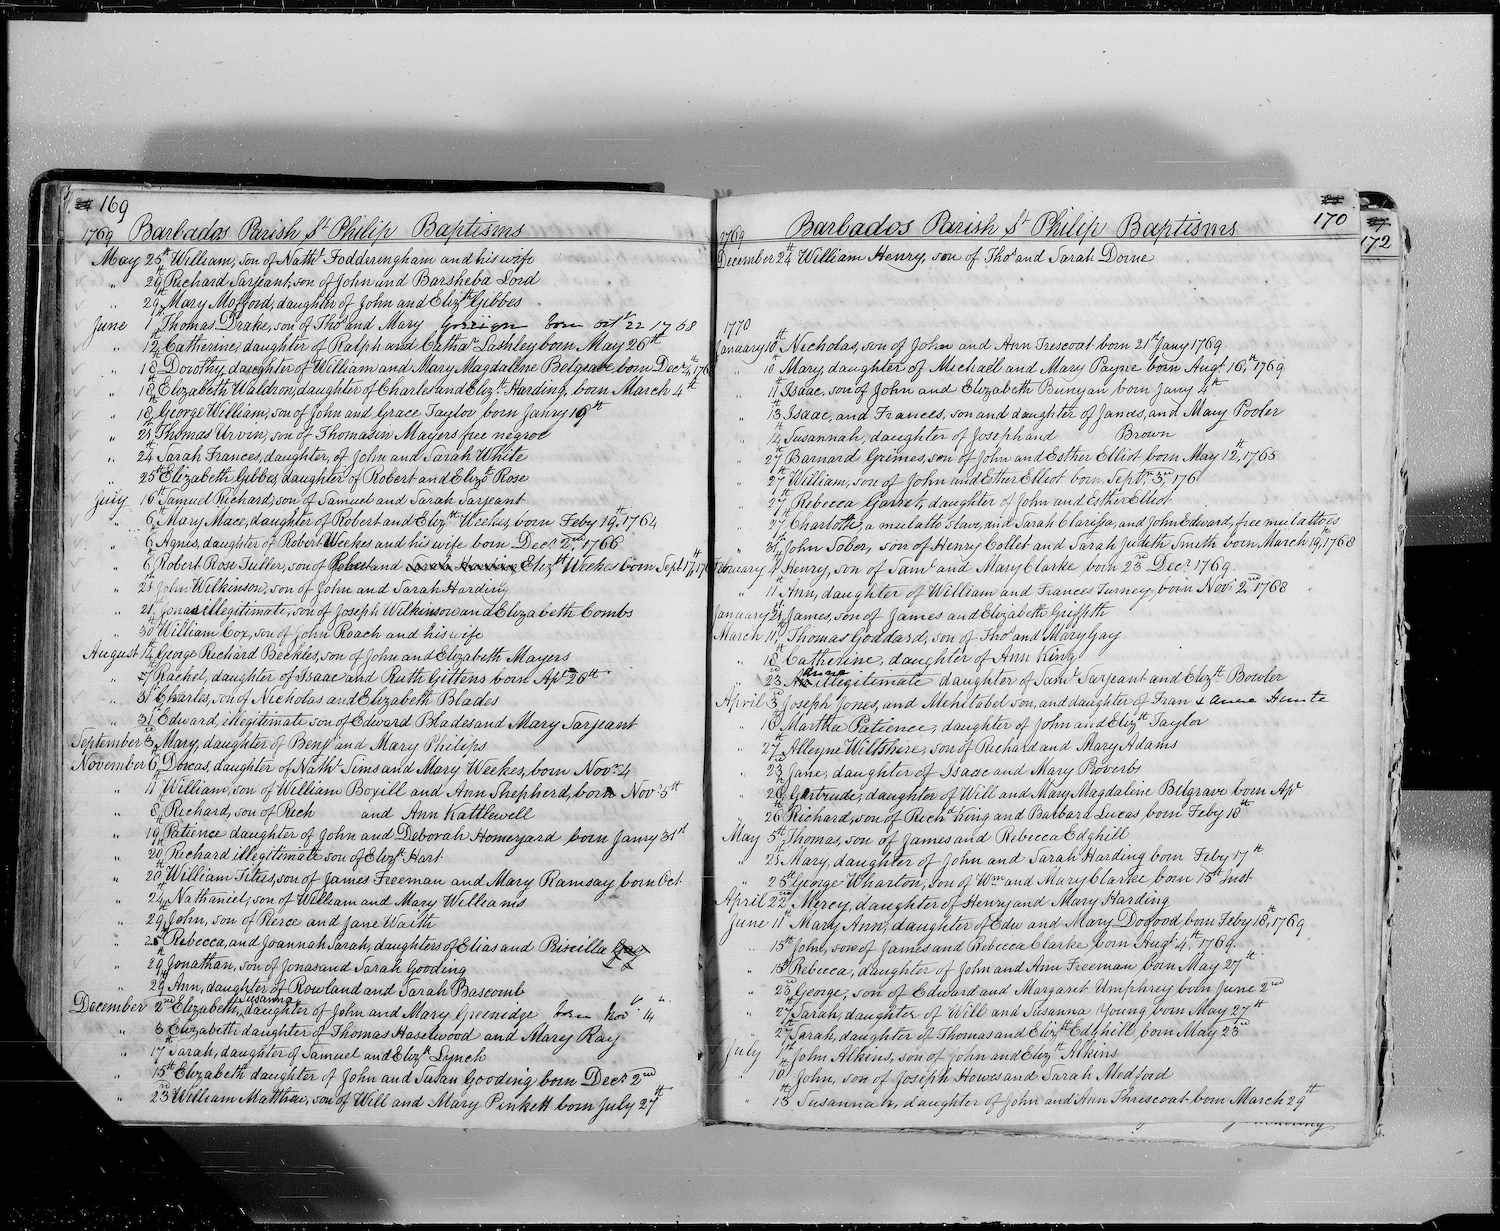 169
1769 Barbados Parish St Philip Baptisms
May 25th William, son of Nathl Fodderingham and his wife
" 29th Richard Sarjeant, son of John and Barsheba Lord
" 29th Mary Mafford, daughter of John and Elizth Gibbes
June 1st Thomas Drake, son of Thos and Mary born octr 22 1768
" 12th Catherine, daughter of Ralph and Cathar Lashley, born May 26th
" 18th Dorothy, daughter of William and Mary Magdalene Belgrave born Decr 4th 176
" 18th Elizabeth Waldron, daughter of Charles and Elizth Harding, born March 4th
" 18th George William, son of John and Grace Taylor born Janry 19th
" 21st Thomas Urvin, son of Thomasin Mayers free negroe
" 24th Sarah Frances, daughter, of John and Sarah White
" 25th Elizabeth Gibbes, daughter of Robert and Elizth Rose
July 16th Samuel Richard, son of Samuel and Sarah Sarjeant
" 6th Mary Mace, daughter of Robert and Elizth Weekes, born Feby 19th 1764
" 6th Agnis, daughter of Robert Weekes and his wife born Decr 2nd 1766
" 6th Robert Rose Tuller, son of Robert and Elizth Weekes born Sept 17th 176
" 21st John Wilkinson, son of John and Sarah Harding
" 21st Jonas illegitimate, son of Joseph Wilkinson and Elizabeth Combs
" 30th William Cox, son of John Roach and his wife
August 14th George Richard Beckles, son of John and Elizabeth Mayers
" 27th Rachel, daughter of Isaac and Ruth Gittens born Apr 26th
" 31st Charles, son of Nicholas and Elizabeth Blades
" 31st Edward, illegitimate son of Edward Blades and Mary Sarjeant
September 3rd Mary, daughter of Benj and Mary Philips
November 6th Dorcas, daughter of Nathl Sims and Mary Weekes, born Novr 4
" 11th William, son of William Boxill and Ann Shepherd, born Novr 5th
" 8th Richard, son of Rich and Ann Kattlewell
" 19th Patience daughter of John and Deborah Homeyard born Janry 31st
" 20th Richard illegitimate son of Elizth Hart
" 20th William Titus, son of James Freeman and Mary Ramsay born Oct
" 24th Nathaniel, son of William and Mary Williams
" 29th John, son of Pierce and Jane Waith
" 26th Rebecca, and Joannah Sarah, daughters of Elias and Priscilla Gay
" 29th Jonathan, son of Jonas and Sarah Gooding
" 29th Ann, daughter of Rowland and Sarah Bascomb
December 2nd Elizabeth Susanna, daughter of John and Mary Greenidge born Novr 14
" 3 Elizabeth daughter of Thomas Haselwood and Mary Ray
" 17th Sarah, daughter of Samuel and Elizth Lynch
" 15th Elizabeth daughter of John and Susan Gooding born Decr 2nd
" 23rd William Matthew, son of Will and Mary Pinkett born July 27th
170
172
1769 Barbados Parish St Philip Baptisms
December 24th William Henry, son of Thos and Sarah Dorne
1770
January 10th Nicholas, son of John and Ann Trescoat born 21st Jany 1769
" 10th Mary, daughter of Michaell and Mary Payne born Augt 16th 1769
" 11th Isaac, son of John and Elizabeth Bunyan born Jany 4th
" 13th Isaac, and Frances, son and daughter of James, and Mary Pooler
" 14th Susannah, daughter of Joseph and Brown
" 27th Barnard Grimes, son of John and Esther Elliot born May 12th 1763
" 27th William, son of John and Esther Elliot born Septr 3rd 176
" 27th Rebecca Garnet, daughter of John and Esther Elliot
" 27th Charlotte, a mulatto slave, and Sarah Clarissa, and John Edward, free mulattoes
" 31st John Sober, son of Henry Collet and Sarah Judith Smith born March 19th 1768
February 4th Henry, son of Saml and Mary Clarke born 23rd Decr 1769
" 11th Ann, daughter of William and Frances Turney, born Novr 2nd 1768
January 21st James, son of James and Elizabeth Griffith
March 11th Thomas Goddard, son of Thos and Mary Gay
" 18th Catherine, daughter of Ann King
" 23rd illegitimate daughter of Saml Sarjeant and Elizth Bowler
April 3rd Joseph Jones, and Mehitabel son, and daughter of Fran & Anne Hunte
" 16th Martha Patience, daughter of John and Elizth Taylor
" 27th Alleyne Wiltshire, son of Richard and Mary Adams
" 23rd Jane, daughter of Isaac and Mary Proverbs
" 26th Gertrude, daughter of Will and Mary Magdaline Belgrave born Apl
" 26th Richard, son of Richd King and Barbara Lucas born Feby 18th
May 5th Thomas, son of James and Rebecca Edghill
" 25th Mary, daughter of John and Sarah Harding born Feby 17th
" 25th George Wharton, son of Wm and Mary Clarke born 15th Inst
April 22nd Mercy, daughter of Henry and Mary Harding
June 11th Mary Ann, daughter of Edw and Mary Dogood born Feby 18th, 1769
" 15th John, son of James and Rebecca Clarke born Augt 4th 1769
" 18th Rebecca, daughter of John and Ann Freeman born May 27th
" 23rd George, son of Edward and Margaret Umphrey born June 2nd
" 27th Sarah, daughter of Will and Susanna Young born May 27th
" 27th Sarah, daughter of Thomas and Elizth Edghill born May 23rd
July 1st John Alkins, son of John and Elizth Alkins
" 10th John, son of Joseph Howes and Sarah Medford
" 13th Susannah, daughter of John and Ann Threscoat born March 29th